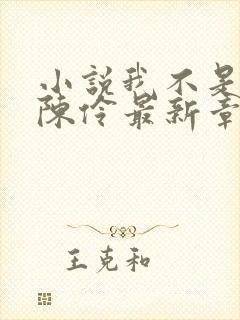 小説我不是
陳伶最新章
王克和